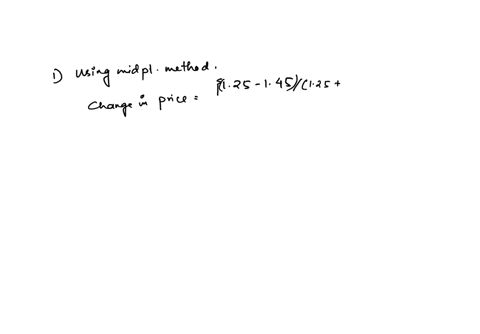 1) Using midpt. method.
Change in price = [(1.25 - 1.45)/(1.25 +